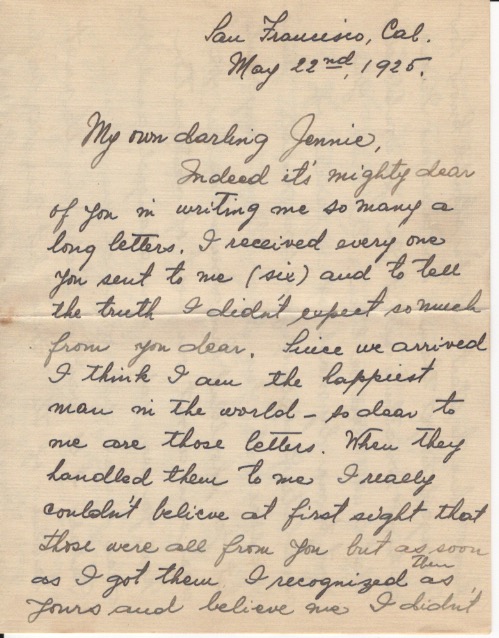 San Francisco, Cal.
May 22nd, 1925.
My own darling Jennie,
Indeed it's mighty dear
of you in writing me so many a
long letters. I received every one
you sent to me (six) and to tell
the truth I didn't expect so much
from you dear. Since we arrived
I think I am the happiest
man in the world - so dear to
me are those letters. When they
handled them to me I really
couldn't believe at first sight that
those were all from you but as soon
as I got them I recognized them as
yours and believe me I didn't